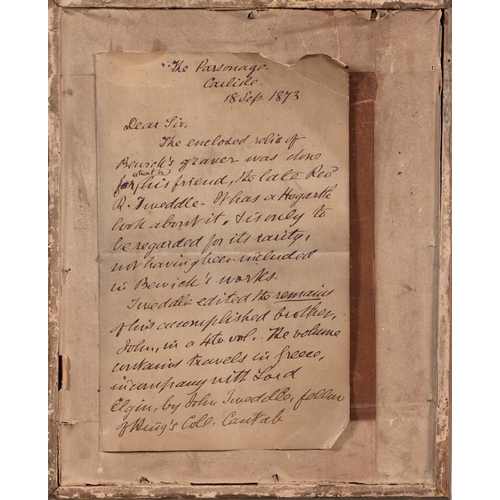 The Parsonage.
Carlisle.
18 Sep. 1873
Dear Sir,
The enclosed relic of
Bewick's graver was done
for his friend, the late Revd
R. Tweddle - It has a Hogarth
look about it, & is only to
be regarded for its rarity,
not having been included
in Bewick's works.
Tweddle edited the remains
of his accomplished brother,
John, in a 4to vol. The volume
contains travels in Greece,
in company with Lord
Elgin, by John Tweddle, fellow
of King's Coll. Cantab